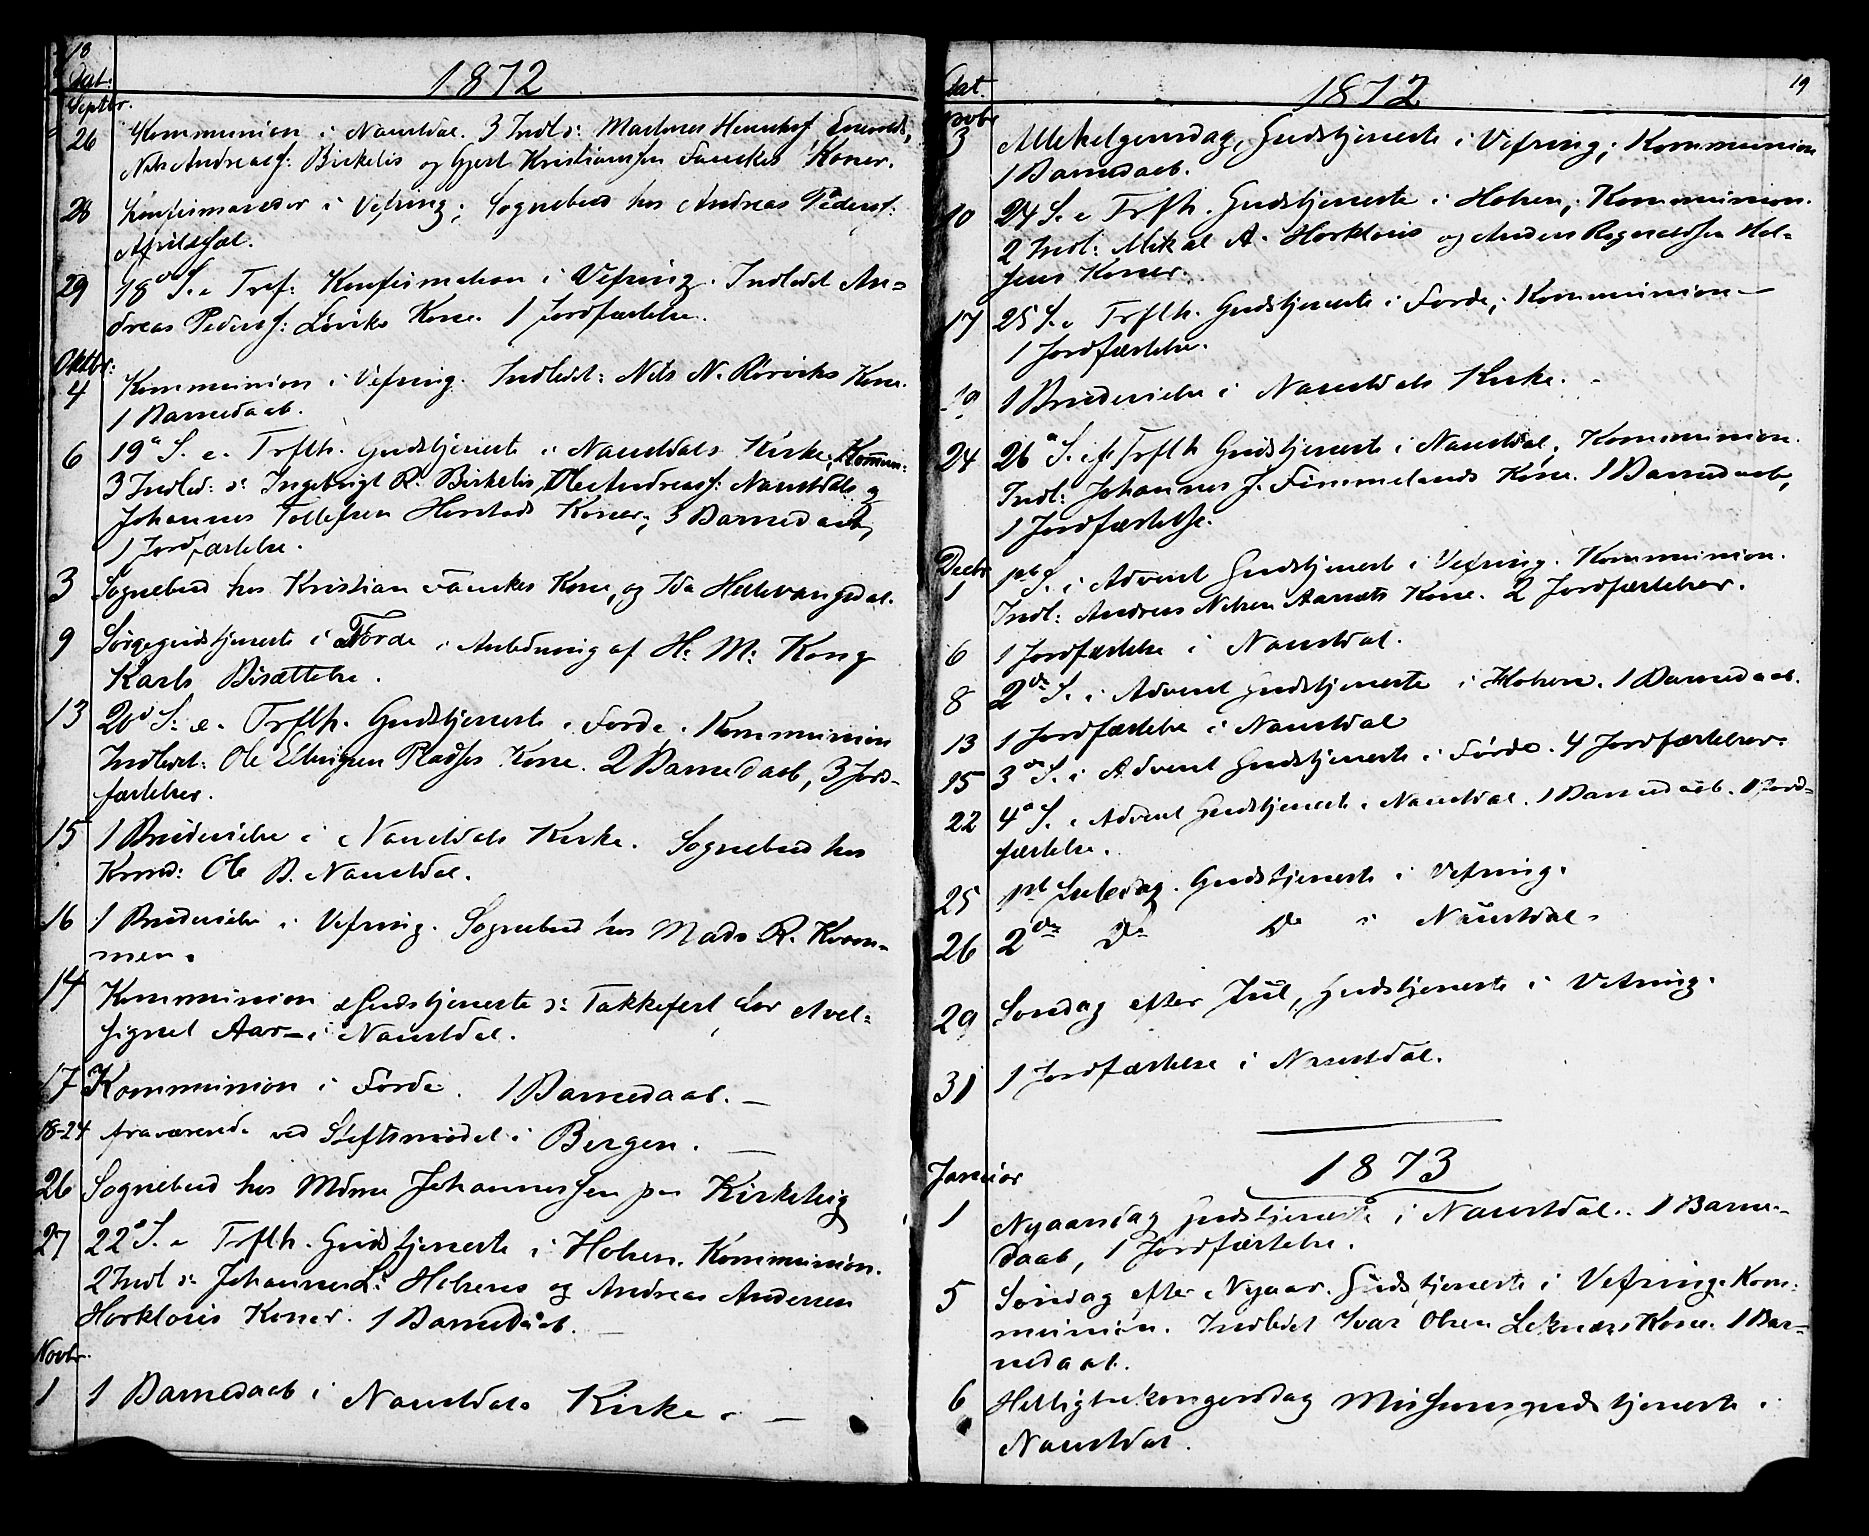 18
Dat. 1872
Septbr.
26 Kommunion i Naustdal. 3 Indl:
Nils Andreasf: Birkelis og Gjert Kristiansen Fanekes Koner.
28 Konfirmander i Vefring; Sognebud hos Andreas Pedersf:

29 18de S. e Tref: Konfirmation i Vefring. Indledet An=
dreas Pedersf: Löviks Kone. 1 Jordfæstelse.
Oktbr:
4 Kommunion i Vefring. Indledet: Nils N. Rörviks Kone.
1 Barnedaab.
6 19de S. e. Trflh. Gudstjeneste i Naustdals Kirke, Kommun:
3 Indled: Ingebrigt R. Birkelis, Ole Andreasf: Naustdals og
Johannes Tollefsen Horstads Koner; 3 Barnedaab,
1 Jordfæstelse.
3 Sognebud hos Kristian Fanekes Kone, og Ida Hellevangsdal.
9 Sørgegudstjeneste i Förde i Anledning af H: M: Kong
Karls Bisættelse.
13 20de S. e. Trflh. Gudstjeneste i Förde. Kommunion
Indledet: Ole Pladsses Kone. 2 Barnedaab, 3 Jord-
fæstelser.
15 1 Brudevielse i Naustdals Kirke. Sognebud hos
Knud: Ole D. Naustdal.
16 1 Brudevielse i Vefring. Sognebud hos Mads R. Kvam-
men.
14 Kommunion Gudstjeneste Takkefest for Vel-
signet Aar i Naustdal.
17 Kommunion i Förde. 1 Barnedaab. —
18-24 fraværende ved Stiftsmödet i Bergen. —
26 Sognebud hos Mdme Johannessen paa Kirketeig
27 22de S. e Trflh. Gudstjeneste i Holsen. Kommunion.
2 Indl Johannes L. Holsens og Andreas Andersen
Horkloiis Koner. 1 Barnedaab. —
Novbr.
1 1 Barnedaab i Naustdals Kirke. —
19
Dat. 1872
Novbr
3 Allehelgensdag, Gudstjeneste i Vefring; Kommunion
1 Barnedaab.
10 24 S. e Trflh. Gudstjeneste i Holsen, Kommunion.
2 Indl: Mikal A. Horkloiis og Anders Hol=
sens Koner.
17 25 S. e Trflh. Gudstjeneste i Förde, Kommunion —
1 Jordfæstelse.
19 1 Brudevielse i Naustdals Kirke.
24 26de S. ef Trflh Gudstjeneste i Naustdal. Kommunion.
Indl: Johannes J. Fimmelands Kone. 1 Barnedaab,
1 Jordfæstelse.
Decbr
1 1st S. i Advent Gudstjeneste i Vefring. Kommunion.
Indl: Andreas Nilsen Aarsæts Kone. 2 Jordfæstelser.
6 1 Jordfæstelse i Naustdal.
8 2de S. i Advent Gudstjeneste i Holsen. 1 Barnedaab.
13 1 Jordfæstelse i Naustdal
15 3de S. i Advent Gudstjeneste i Förde. 4 Jordfæstelser.
22 4de S. i Advent Gudstjeneste i Naustdal. 1 Barnedaab. 1 Jord-
fæstelse.
25 1st Juledag. Gudstjeneste i Vefring.
26 2den Do Do i Naustdal.
29 Söndag efter Jul, Gudstjeneste i Vefring.
31 1 Jordfæstelse i Naustdal.
1873
Januar
1 Nyaarsdag Gudstjeneste i Naustdal. 1 Barne-
daab, 1 Jordfæstelse.
5 Söndag efter Nyaar. Gudstjeneste i Vefring. Kom-
munion. Indledet Ivar Olsen Leknæs Kone. 1 Bar-
nedaab.
6 Helligtrekongersdag Missionsgudstjeneste i
Naustdal.